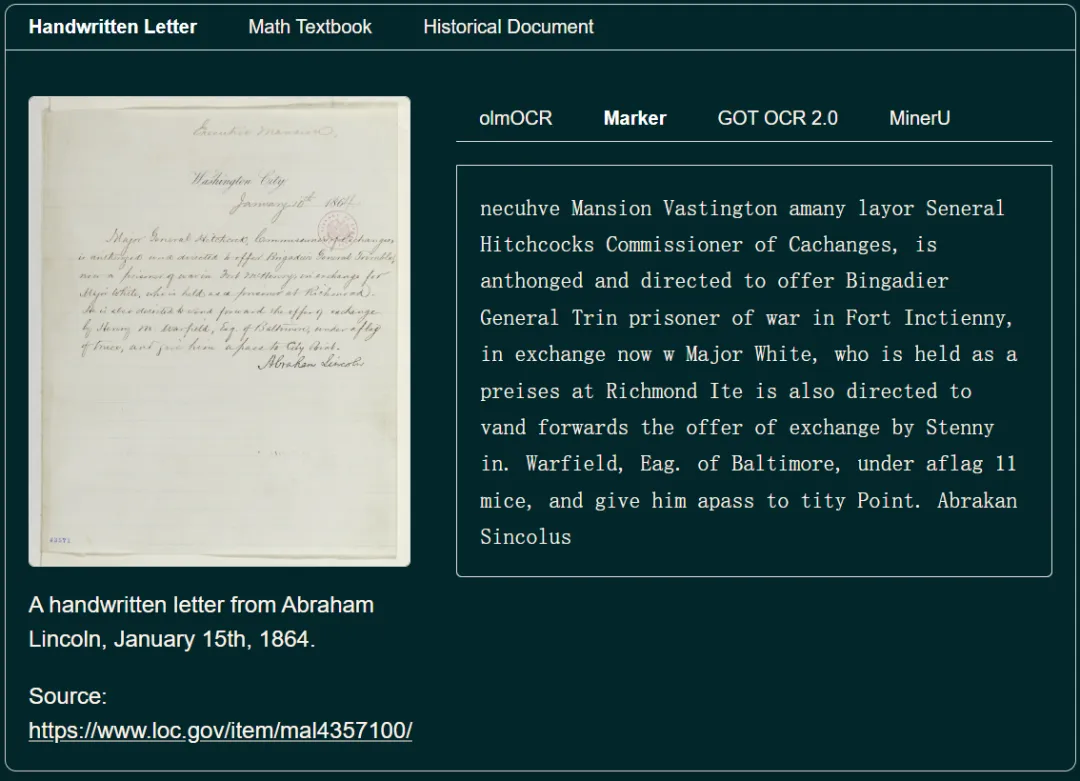 Handwritten Letter Math Textbook Historical Document
Executive Mansion,
Washington City,
January 15th 1864
Major General Hitchcock, Commissioner of Exchanges,
is authorized and directed to offer Brigadier General Trimble,
now a prisoner of war in Fort McHenry, in exchange for
Major White, who is held as a prisoner at Richmond.
He is also directed to send forward the offer of exchange
by Henry M. Warfield, Esq. of Baltimore, under a flag
of truce, and give him a pass to City Point.
Abraham Lincoln
43571
A handwritten letter from Abraham
Lincoln, January 15th, 1864.
Source:
https://www.loc.gov/item/mal4357100/
olmOCR Marker GOT OCR 2.0 MinerU
necuhve Mansion Vastington amany layor Seneral
Hitchcocks Commissioner of Cachanges, is
anthonged and directed to offer Bingadier
General Trin prisoner of war in Fort Inctienny,
in exchange now w Major White, who is held as a
preises at Richmond Ite is also directed to
vand forwards the offer of exchange by Stenny
in. Warfield, Eag. of Baltimore, under aflag 11
mice, and give him apass to tity Point. Abrakan
Sincolus